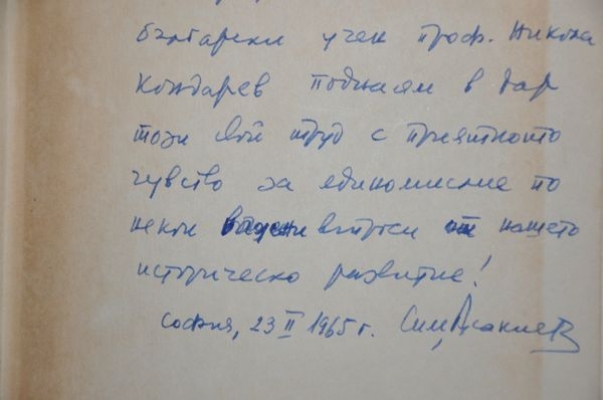 български учен проф. Никола
Кондарев поднасям в дар
този свой труд с приятното
чувство за единомислие по
некои важни въпроси от нашето
историческо развитие!
София, 23 II 1965 г. Сим.